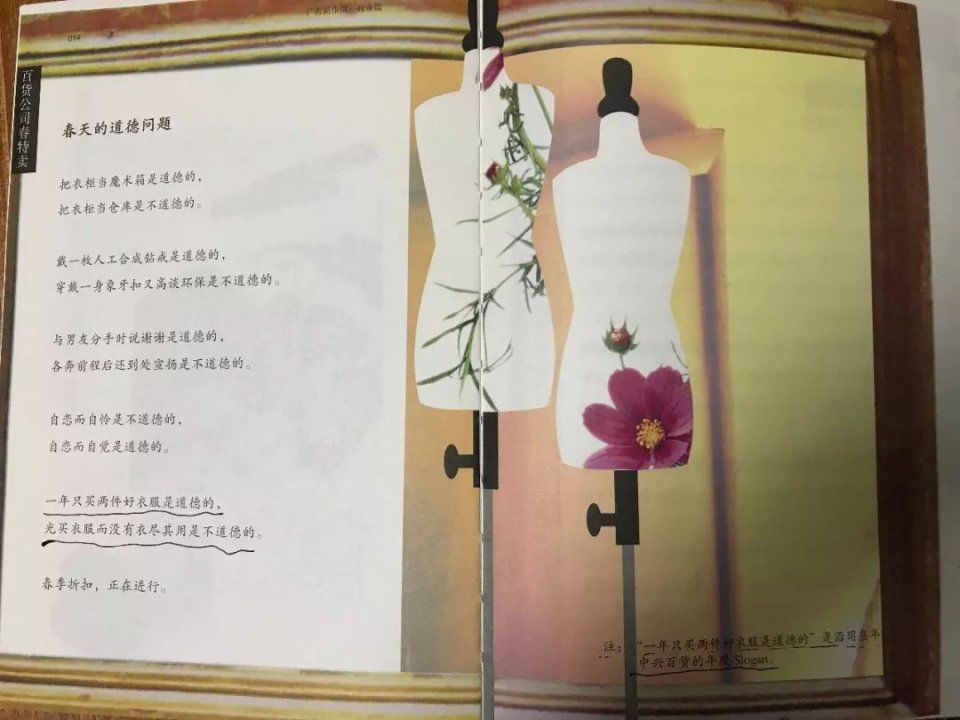 014
商业篇
百货公司春特卖
春天的道德问题
把衣柜当魔术箱是道德的，
把衣柜当仓库是不道德的。
戴一枚人工合成钻戒是道德的，
穿戴一身象牙扣又高谈环保是不道德的。
与男友分手时说谢谢是道德的，
各奔前程后还到处宣扬是不道德的。
自恋而自怜是不道德的，
自恋而自觉是道德的。
一年只买两件好衣服是道德的，
光买衣服而没有衣尽其用是不道德的。
春季折扣，正在进行。
注：“一年只买两件好衣服是道德的”是沿用当年
中兴百货的年度 Slogan。